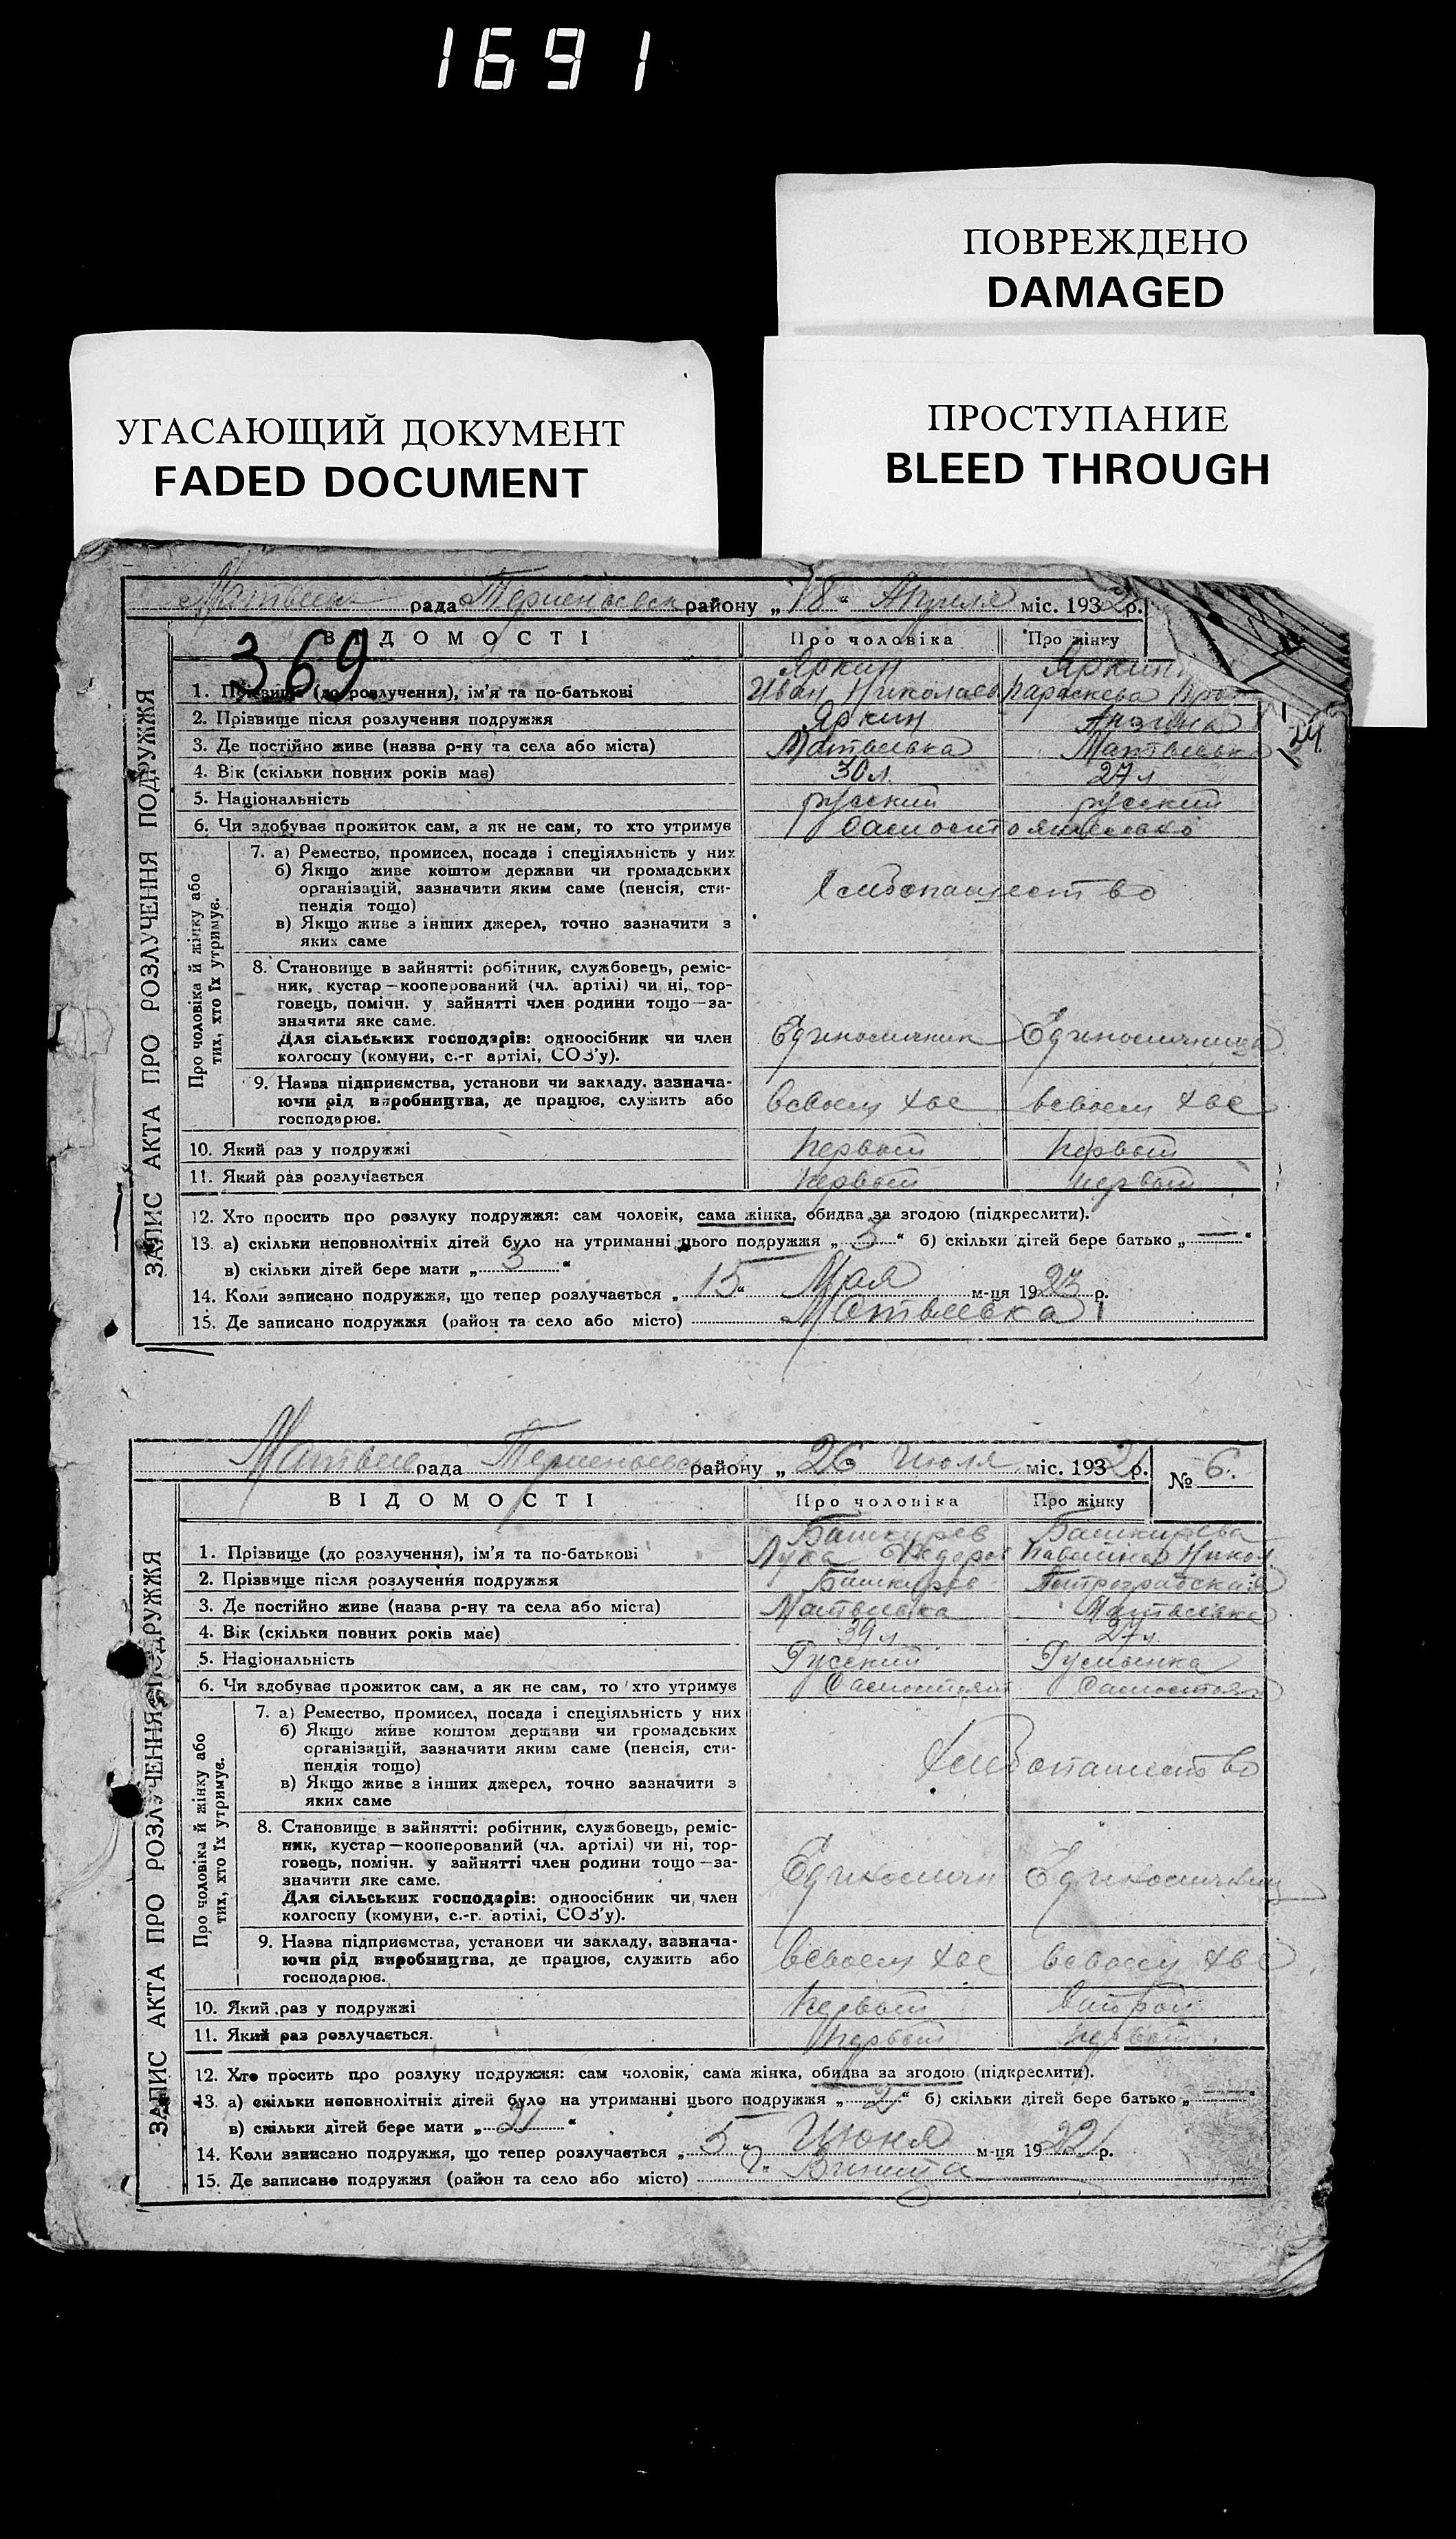 1691
ПОВРЕЖДЕНО
DAMAGED
УГАСАЮЩИЙ ДОКУМЕНТ
FADED DOCUMENT
ПРОСТУПАНИЕ
BLEED THROUGH
рада району „18“ Апреля міс. 1932р.
369
ВІДОМОСТІ Про чоловіка Про жінку
ЗАПИС АКТА ПРО РОЗЛУЧЕННЯ ПОДРУЖЖЯ
Яркин
1. Прізвище (до розлучення), ім'я та по-батькові Иван Николаев Параскева
2. Прізвище після розлучення подружжя Яркин
3. Де постійно живе (назва р-ну та села або міста) Матвеевка Матвеевка
4. Вік (скільки повних років має) 30 л. 27 л
5. Національність русский русский
6. Чи здобуває прожиток сам, а як не сам, то хто утримує
Про чоловіка й жінку або тих, хто їх утримує.
7. а) Ремество, промисел, посада і спеціяльність у них
б) Якщо живе коштом держави чи громадських
організацій, зазначити яким саме (пенсія, сти-
пендія тощо)
Хлебопашество
в) Якщо живе з інших джерел, точно зазначити з
яких саме
8. Становище в зайнятті: робітник, службовець, реміс-
ник, кустар—кооперований (чл. артілі) чи ні, тор-
говець, помічн. у зайнятті член родини тощо—за-
значити яке саме.
Для сільських господарів: одноосібник чи член
колгоспу (комуни, с.-г артілі, СОЗ'у).
Единоличник Единоличница
9. Назва підприємства, установи чи закладу, зазнача-
ючи рід виробництва, де працює, служить або
господарює.
всвоем хве всвоем хве
10. Який раз у подружжі первый первый
11. Який раз розлучається первый первый
12. Хто просить про розлуку подружжя: сам чоловік, сама жінка, обидва за згодою (підкреслити).
13. а) скільки неповнолітніх дітей було на утриманні цього подружжя „3“ б) скільки дітей бере батько „—“
в) скільки дітей бере мати „3“
14. Коли записано подружжя, що тепер розлучається „15“ Мая м-ця 1923 р.
15. Де записано подружжя (район та село або місто) Матвеевка
Матвеев рада району „26 Июля міс. 1932р. № 6.
ВІДОМОСТІ Про чоловіка Про жінку
ЗАПИС АКТА ПРО РОЗЛУЧЕННЯ ПОДРУЖЖЯ
Башкирев Башкирева
1. Прізвище (до розлучення), ім'я та по-батькові Лука Федоров
2. Прізвище після розлучення подружжя Башкирев
3. Де постійно живе (назва р-ну та села або міста) Матвеевка Матвеевка
4. Вік (скільки повних років має) 39 л 27 л
5. Національність Русский Румынка
6. Чи здобуває прожиток сам, а як не сам, то хто утримує Самостоят Самостоят
Про чоловіка й жінку або тих, хто їх утримує.
7. а) Ремество, промисел, посада і спеціяльність у них
б) Якщо живе коштом держави чи громадських
організацій, зазначити яким саме (пенсія, сти-
пендія тощо)
Хлебопашество
в) Якщо живе з інших джерел, точно зазначити з
яких саме
8. Становище в зайнятті: робітник, службовець, реміс-
ник, кустар—кооперований (чл. артілі) чи ні, тор-
говець, помічн. у зайнятті член родини тощо—за-
значити яке саме.
Для сільських господарів: одноосібник чи член
колгоспу (комуни, с.-г. артілі, СОЗ'у).
Единоличн Единоличниц
9. Назва підприємства, установи чи закладу, зазнача-
ючи рід виробництва, де працює, служить або
господарює.
всвоем хве всвоем хве
10. Який раз у подружжі первый второй
11. Який раз розлучається. первый первый
12. Хто просить про розлуку подружжя: сам чоловік, сама жінка, обидва за згодою (підкреслити).
13. а) скільки неповнолітніх дітей було на утриманні цього подружжя „2“ б) скільки дітей бере батько „—“
в) скільки дітей бере мати „2“
14. Коли записано подружжя, що тепер розлучається „5“ Июня м-ця 1922 р.
15. Де записано подружжя (район та село або місто)